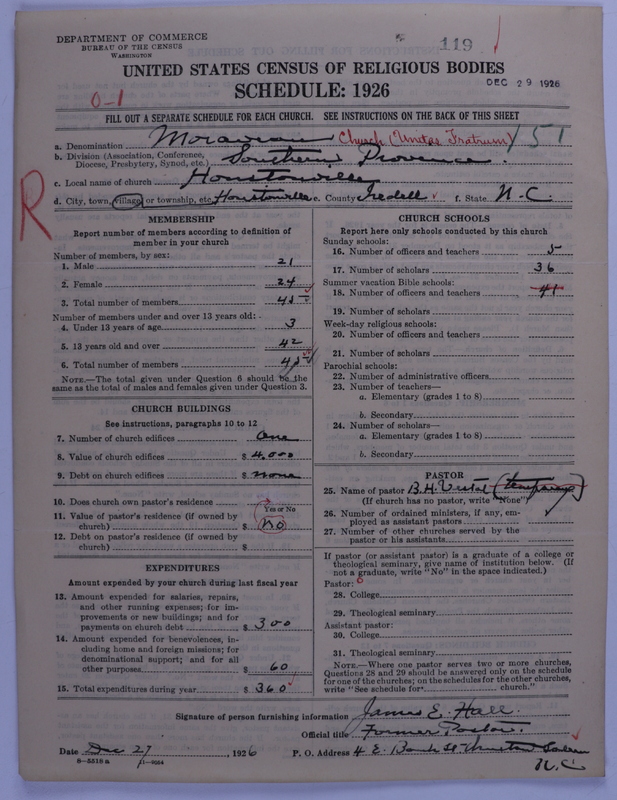 DEPARTMENT OF COMMERCE
BUREAU OF THE CENSUS
WASHINGTON
119
UNITED STATES CENSUS OF RELIGIOUS BODIES
DEC 29 1926
SCHEDULE: 1926
0-1
FILL OUT A SEPARATE SCHEDULE FOR EACH CHURCH. SEE INSTRUCTIONS ON THE BACK OF THIS SHEET
a. Denomination Moravian Church (Unitas Fratrum) 151
b. Division (Association, Conference, Diocese, Presbytery, Synod, etc.) Southern Province.
c. Local name of church Houstonville
d. City, town, village, or township, etc. Houstonville e. County Iredell f. State N.C.
R
MEMBERSHIP
Report number of members according to definition of
member in your church
Number of members, by sex:
1. Male 21
2. Female 24
3. Total number of members 45
Number of members under and over 13 years old:
4. Under 13 years of age 3
5. 13 years old and over 42
6. Total number of members 45
NOTE.—The total given under Question 6 should be the
same as the total of males and females given under Question 3.
CHURCH BUILDINGS
See instructions, paragraphs 10 to 12
7. Number of church edifices One
8. Value of church edifices $ 4,000
9. Debt on church edifices $ none
10. Does church own pastor's residence
Yes or No
11. Value of pastor's residence (if owned by
church) $ no
12. Debt on pastor's residence (if owned by
church) $
EXPENDITURES
Amount expended by your church during last fiscal year
13. Amount expended for salaries, repairs,
and other running expenses; for im-
provements or new buildings; and for
payments on church debt $ 300
14. Amount expended for benevolences, in-
cluding home and foreign missions; for
denominational support; and for all
other purposes $ 60
15. Total expenditures during year $ 360
CHURCH SCHOOLS
Report here only schools conducted by this church
Sunday schools:
16. Number of officers and teachers 5
17. Number of scholars 36
Summer vacation Bible schools:
18. Number of officers and teachers 41
19. Number of scholars
Week-day religious schools:
20. Number of officers and teachers
21. Number of scholars
Parochial schools:
22. Number of administrative officers
23. Number of teachers—
a. Elementary (grades 1 to 8)
b. Secondary
24. Number of scholars—
a. Elementary (grades 1 to 8)
b. Secondary
PASTOR
25. Name of pastor B.H. Vestal (temporary)
(If church has no pastor, write "None")
26. Number of ordained ministers, if any, em-
ployed as assistant pastors
27. Number of other churches served by the
pastor or his assistants
If pastor (or assistant pastor) is a graduate of a college or
theological seminary, give name of institution below. (If
not a graduate, write "No" in the space indicated.)
Pastor:
28. College
29. Theological seminary
Assistant pastor:
30. College
31. Theological seminary
NOTE.—Where one pastor serves two or more churches,
Questions 28 and 29 should be answered only on the schedule
for one of the churches; on the schedules for the other churches,
write "See schedule for church."
Signature of person furnishing information James E. Hall
Official title Former Pastor.
Date Dec 27, 1926 P. O. Address 4 E. Bank St Winston Salem
N.C.
8—5518 a 11—9054